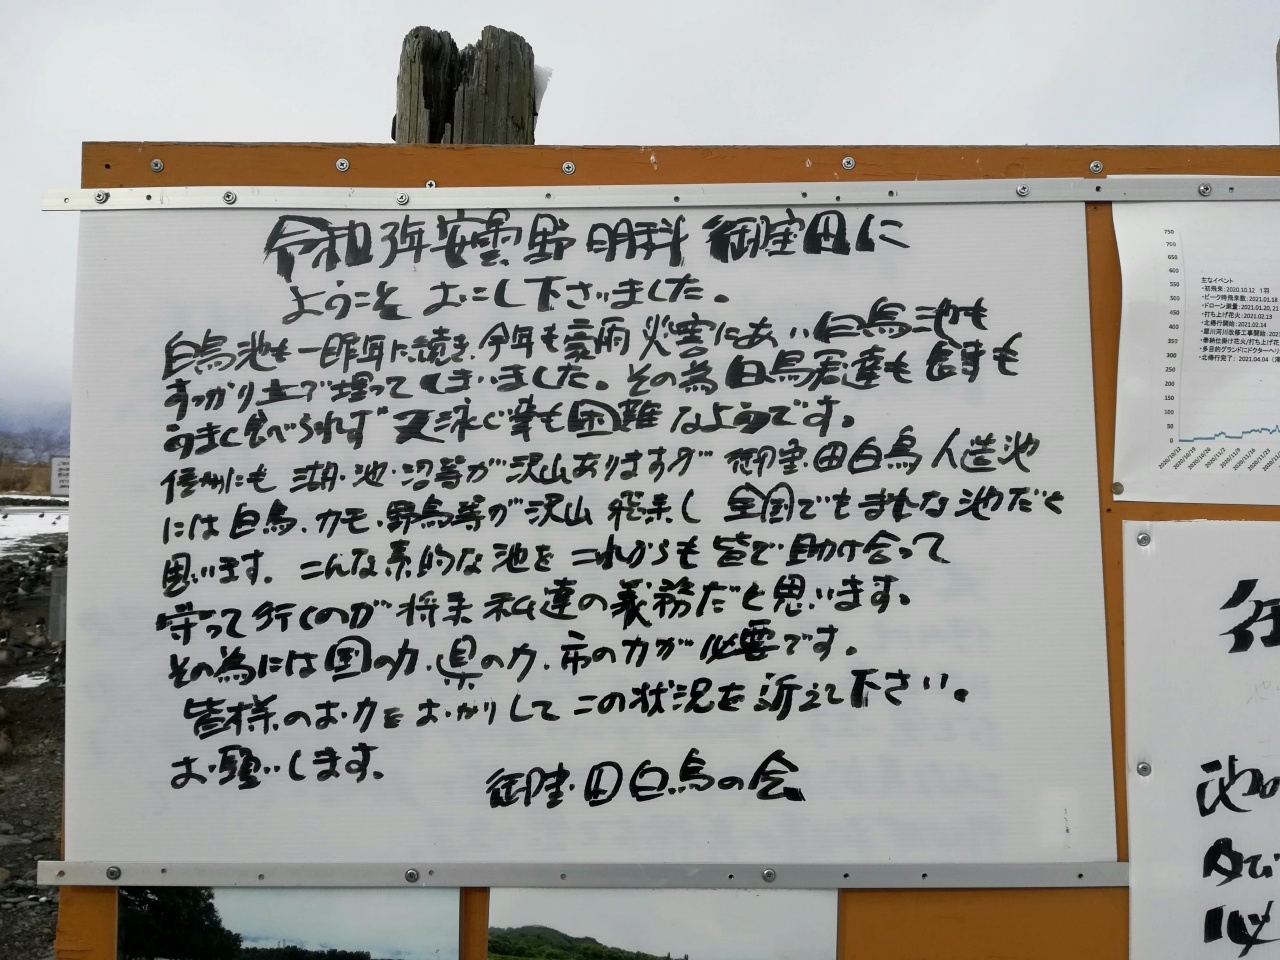 令和3年安曇野明科御宝田に
ようこそおこし下さいました。
白鳥池も一昨年に続き、今年も豪雨災害にあい白鳥池も
すっかり土で埋ってしまいました。その為白鳥君達も良すも
うまく食べられず又泳ぐ事も困難なようです。
信州にも湖・池・沼等が沢山ありますが御宝田白鳥人造池
には白鳥、カモ、野鳥等が沢山飛来し全国でもまれな池だと
思います。こんな素的な池をこれからも皆で助け合って
守って行くのが将来私達の義務だと思います。
その為には国の力、県の力、市の力が必要です。
皆様のお力をおかりしてこの状況を訴えて下さい。
お願いします。
御宝田白鳥の会
750
700
650
600
550
500
450
400
350
300
250
200
150
100
50
0
主なイベント
・初飛来：2020.10.12 1羽
・ピーク時飛来数：2021.01.18
・ドローン測量：2021.01.20,21
・打ち上げ花火：2021.02.13
・北帰行開始：2021.02.14
・犀川河川改修工事開始：202
・奉納仕掛け花火/打ち上げ花
・多目的グランドにドクターヘリ
・北帰行完了：2021.04.04
2020/10/12
2020/10/19
2020/10/26
2020/11/2
2020/11/9
2020/11/16
2020/11/23
池の
及び
必